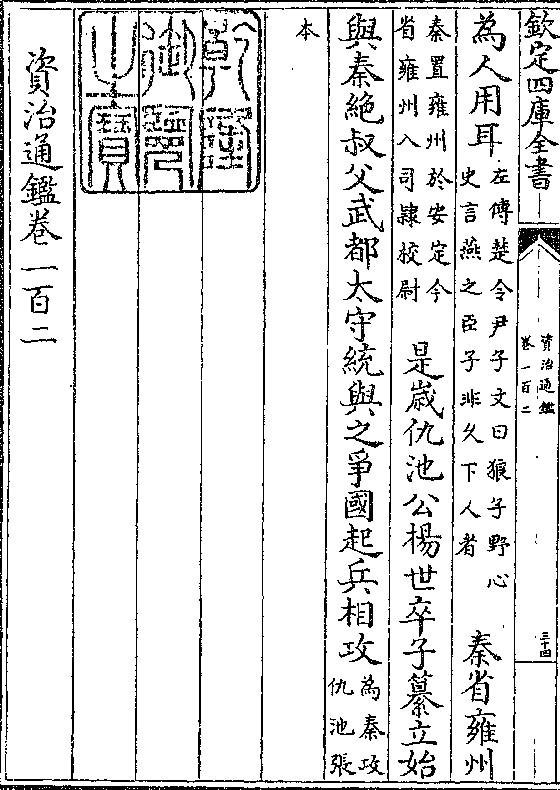 欽定四庫全書
資治通鑑
卷一百二
三十四
為人用耳
左傳楚令尹子文曰狼子野心
史言燕之臣子非久下人者
秦省雍州
秦置雍州於安定今
省雍州入司隸校尉
是歲仇池公楊世卒子纂立始
與秦絶叔父武都太守統與之爭國起兵相攻
為秦攻
仇池張
本
乾隆
御覽
之寶
資治通鑑卷一百二